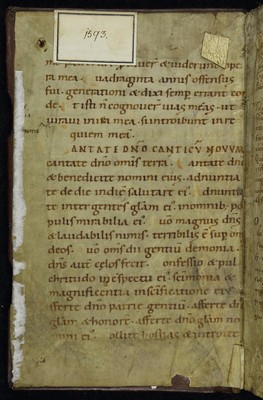 1393.
et viderunt ope
ra mea. uadraginta annis offensus
fui generationi & dixi semp errant cor
de. t isti ñ cognouer uias meas. ut
iuraui in ira mea. si introibunt in re
quiem mea
ANTATE DNO CANTICV NOVVM
cantate dño omis terra. antate dño
& benedicite nomini eius. adnuntia
te de die indie salutare ei. dnuntia
te inter gentes gloriam ei. in omnib; po
pulis mirabilia ei. uo magnus dñs
& laudabilis nimis. terribilis ē sup om
deos. uo oms dii gentiū demonia.
dñs aut cęlos fecit. onfessio & pul
chritudo in cspectu ei. scimonia &
magnificentia in scificatione ei
afferte dño patrie gentiū. afferte dño
glam & honore. afferte dño glam no
mini ei. ollite hostias & introite